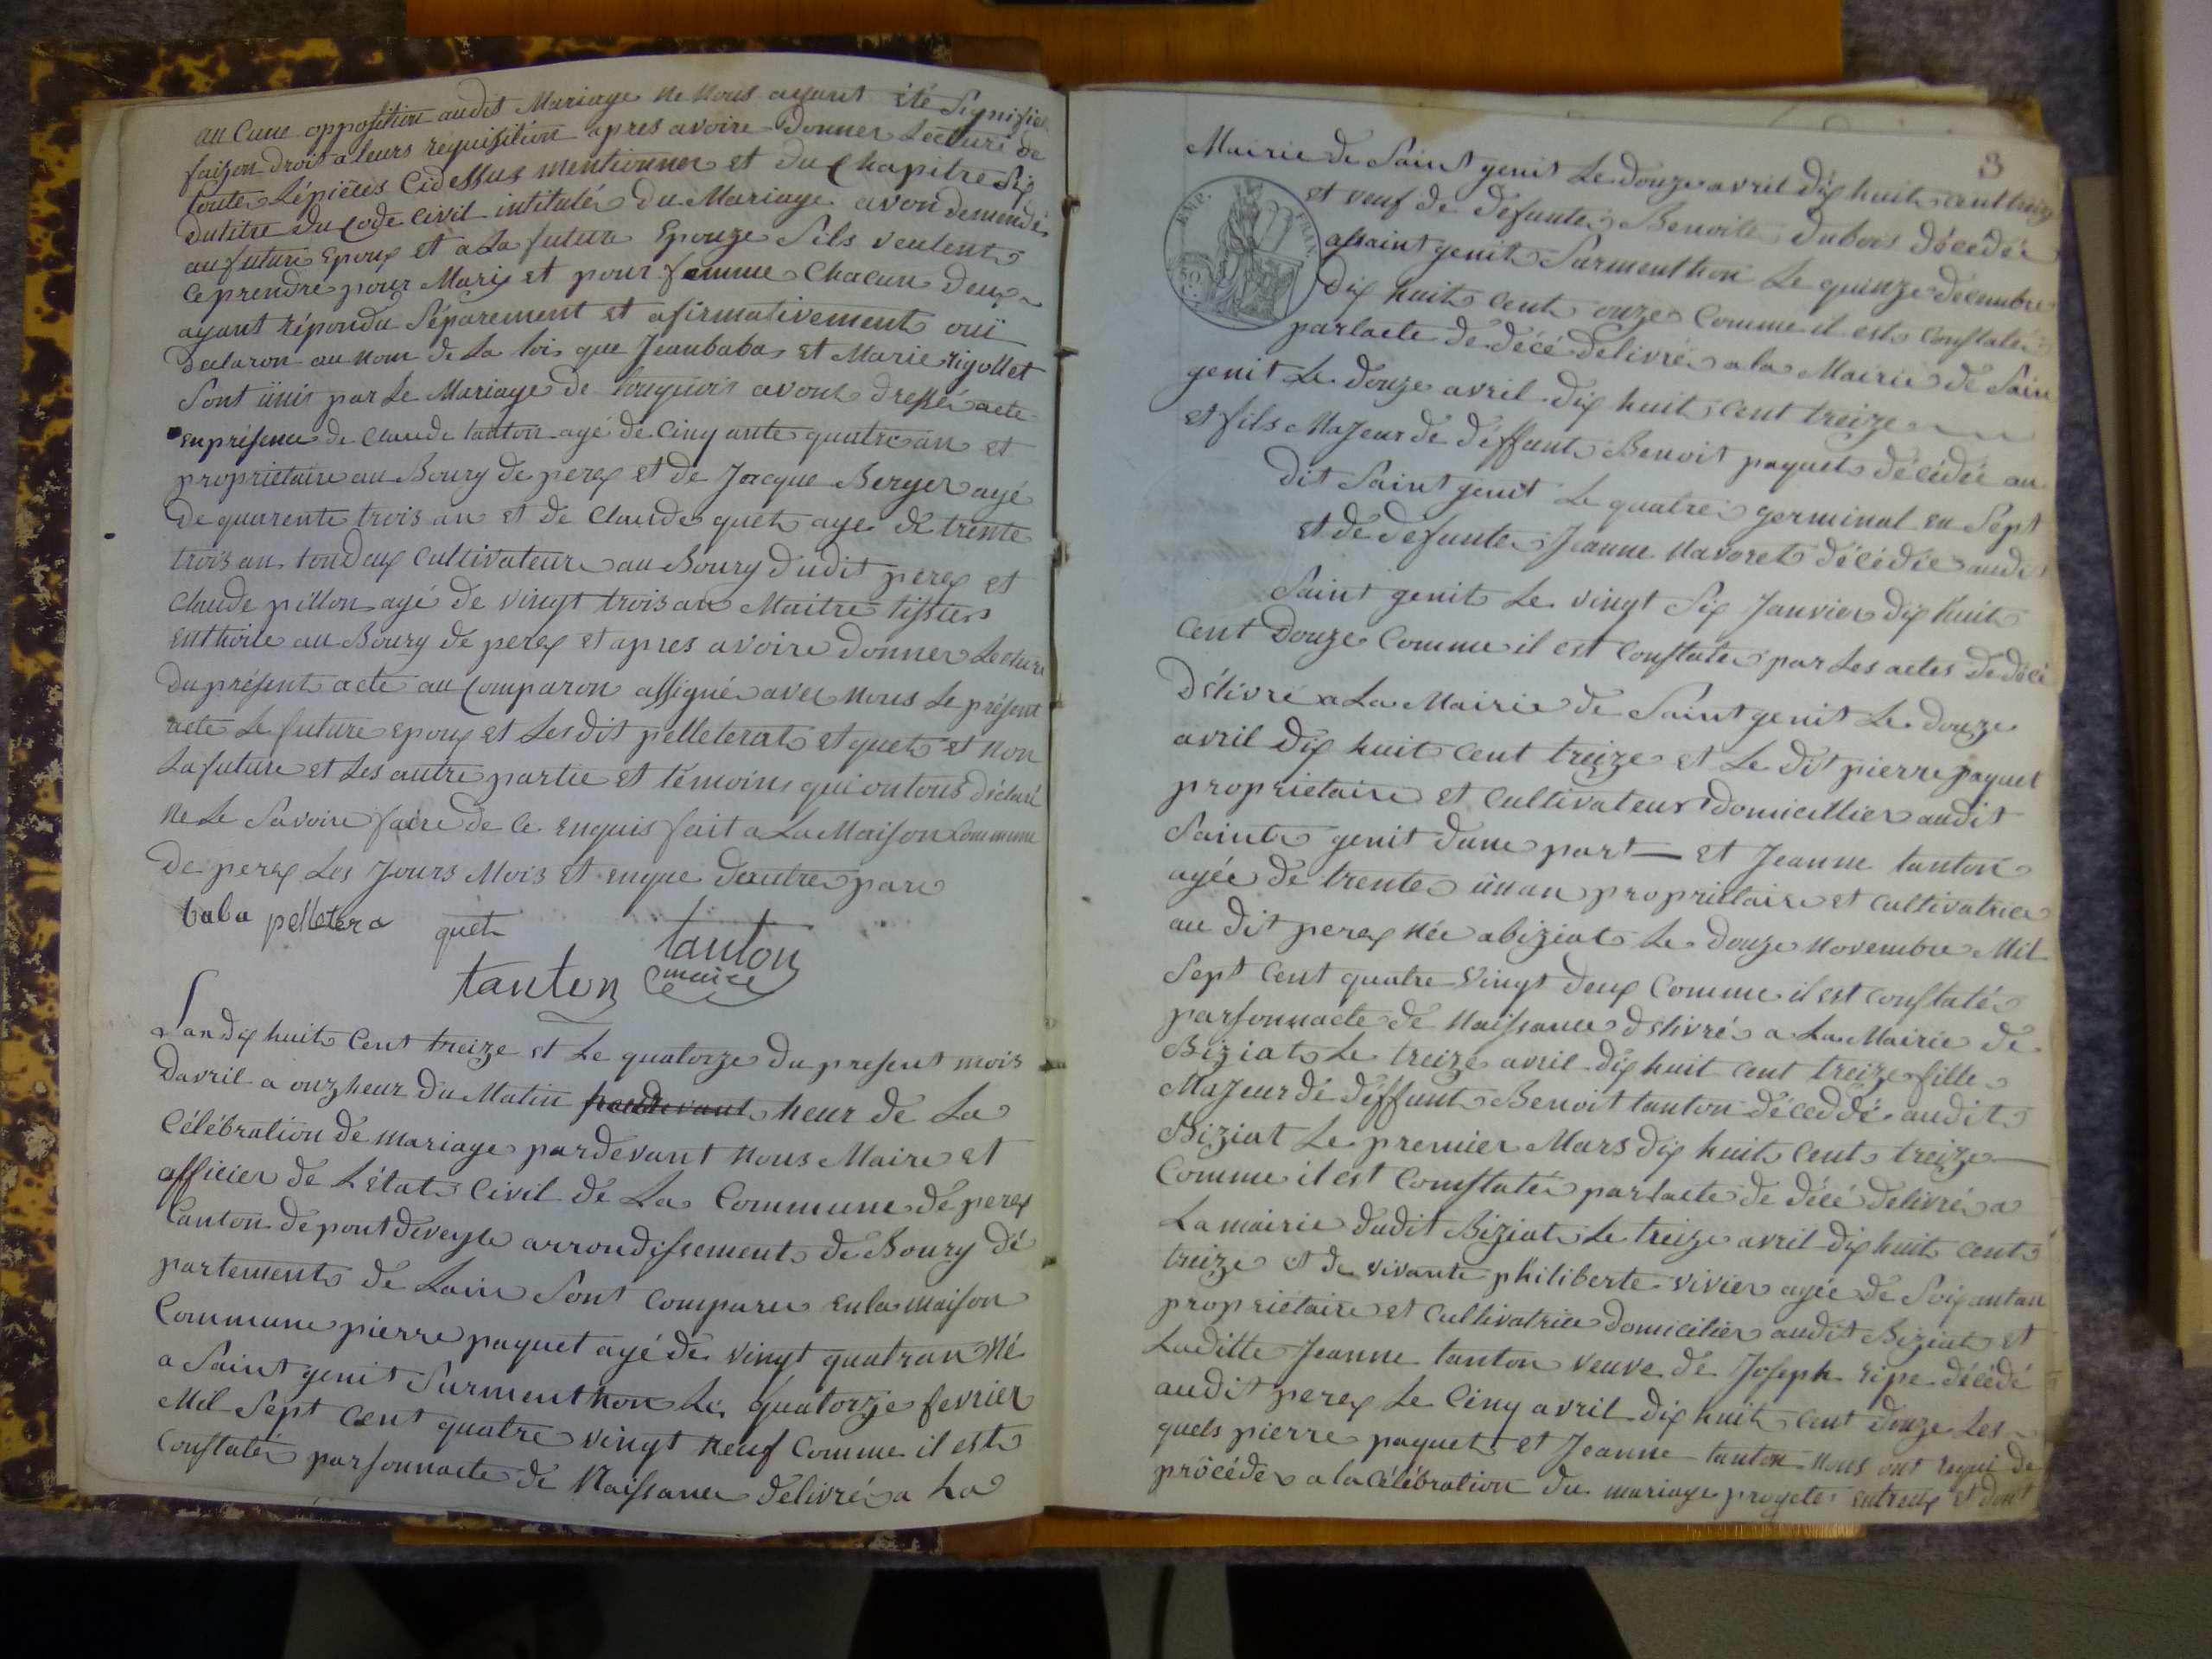 au Cune opposition audit Mariage ne nous ayant été Signifié
faizon droit a leurs requisition apres avoire Donner Lecture de
toute Lépièces Cidessus mentionner et du Chapitre Six
dutitre du Code Civil intitulés du Mariage avon demendé
au future Epoux et a La future Epouze Sils veulent
ce prendre pour Mari et pour femme Chacun deux
ayant répondu Séparement et afirmativement oui
declaron au nom de La loi que Jeanbaba et Marie rigollet
Sont ünis par Le Mariage de touquois avons dressé acte
enprésence de Claude tanton agé de Cinq ante quatre an et
proprietaire au Bourg de perex et de Jacque Berger agé
de quarente trois an et de Claude quet age de trente
trois an toudeux Cultivateure au Bourg dudit perex et
Claude pillon agé de vingt trois an Maitre tissier
enthoile au Bourg de perex et apres avoire donner Lecture
du présent acte au Comparon assigné avec nous Le présent
acte Le future epoux et Lesdit pelleterat et quet et non
La future et Les autre partie et témoins qui ontous déclaré
ne Le Savoire faire de Ce enquis fait a La Maison Commune
de perex Les Jours Mois et enque dautre pare
baba pelletera quet tanton
tanton maire
Lan dix huit Cent treize et Le quatorze du present mois
Davril a onz heur du Matin pardevant heur de La
Célébration de mariage pardevant nous Maire et
officier de L'état Civil de La Commune de perex
Canton de pontdeveyle arrondissement de Bourg dé
partement de Lain Sont Comparu en la maison
Commune pierre paquet agé de vingt quatran né
a Saint genit Surmenthon Le quatorze fevrier
Mil Sept Cent quatre vingt neuf Comme il est
Constatés parsonnacte de Naissance délivré a La
3
Mairie de Saint genit Le douze avril dix huit cent treize
EMP. FRAN.
50 C.
et veuf de defunte Benoite dubois décédée
assaint genit Surmenthon Le quinze decembre
Dix huit Cent onze Comme il est Constaté
parlacte de décé délivré a la Mairie de Sain
genit Le douze avril dix huit Cent treize
et fils Majeur de déffunt Benoit paquet décédée au
dit Saint genit Le quatre germinal en Sept
et de defunte Jeanne Navoret décédée audit
Saint genit Le vingt Six Janvier dix huit
Cent Douze Comme il est Constaté par Les actes de décé
Délivré a La Mairie de Saint genit Le douze
avril dix huit Cent treize et Le dit pierre paquet
proprietaire et Cultivateur domicillier audit
Saint genit dune part — et Jeanne tanton
agée de trente ün an propriétaire et Cultivatrice
au dit perex née abiziat Le douze Novembre Mil
Sept Cent quatre vingt deux Comme il est Constaté
parsonnacte de Naissance délivré a La Mairie de
Biziat Le treize avril dix huit Cent treize fille
Majeur dé déffunt Benoit tanton déceddé audit
Biziat Le premier Mars dix huit Cent treize —
Comme il est Constaté parlacte de décé délivré a
La mairie dudit Biziat Le treize avril dix huit Cent
treize et de vivante philiberte vivier agée de Soixantan
propriétaire et Cultivatrice domicilier audit Biziat et
Laditte Jeanne tanton veuve de Joseph ripe décédé
audit perex Le Cinq avril dix huit Cent douze Les
quels pierre paquet et Jeanne tanton nous ont requi de
procéder a la Célébration du mariage progeté entreux et dont